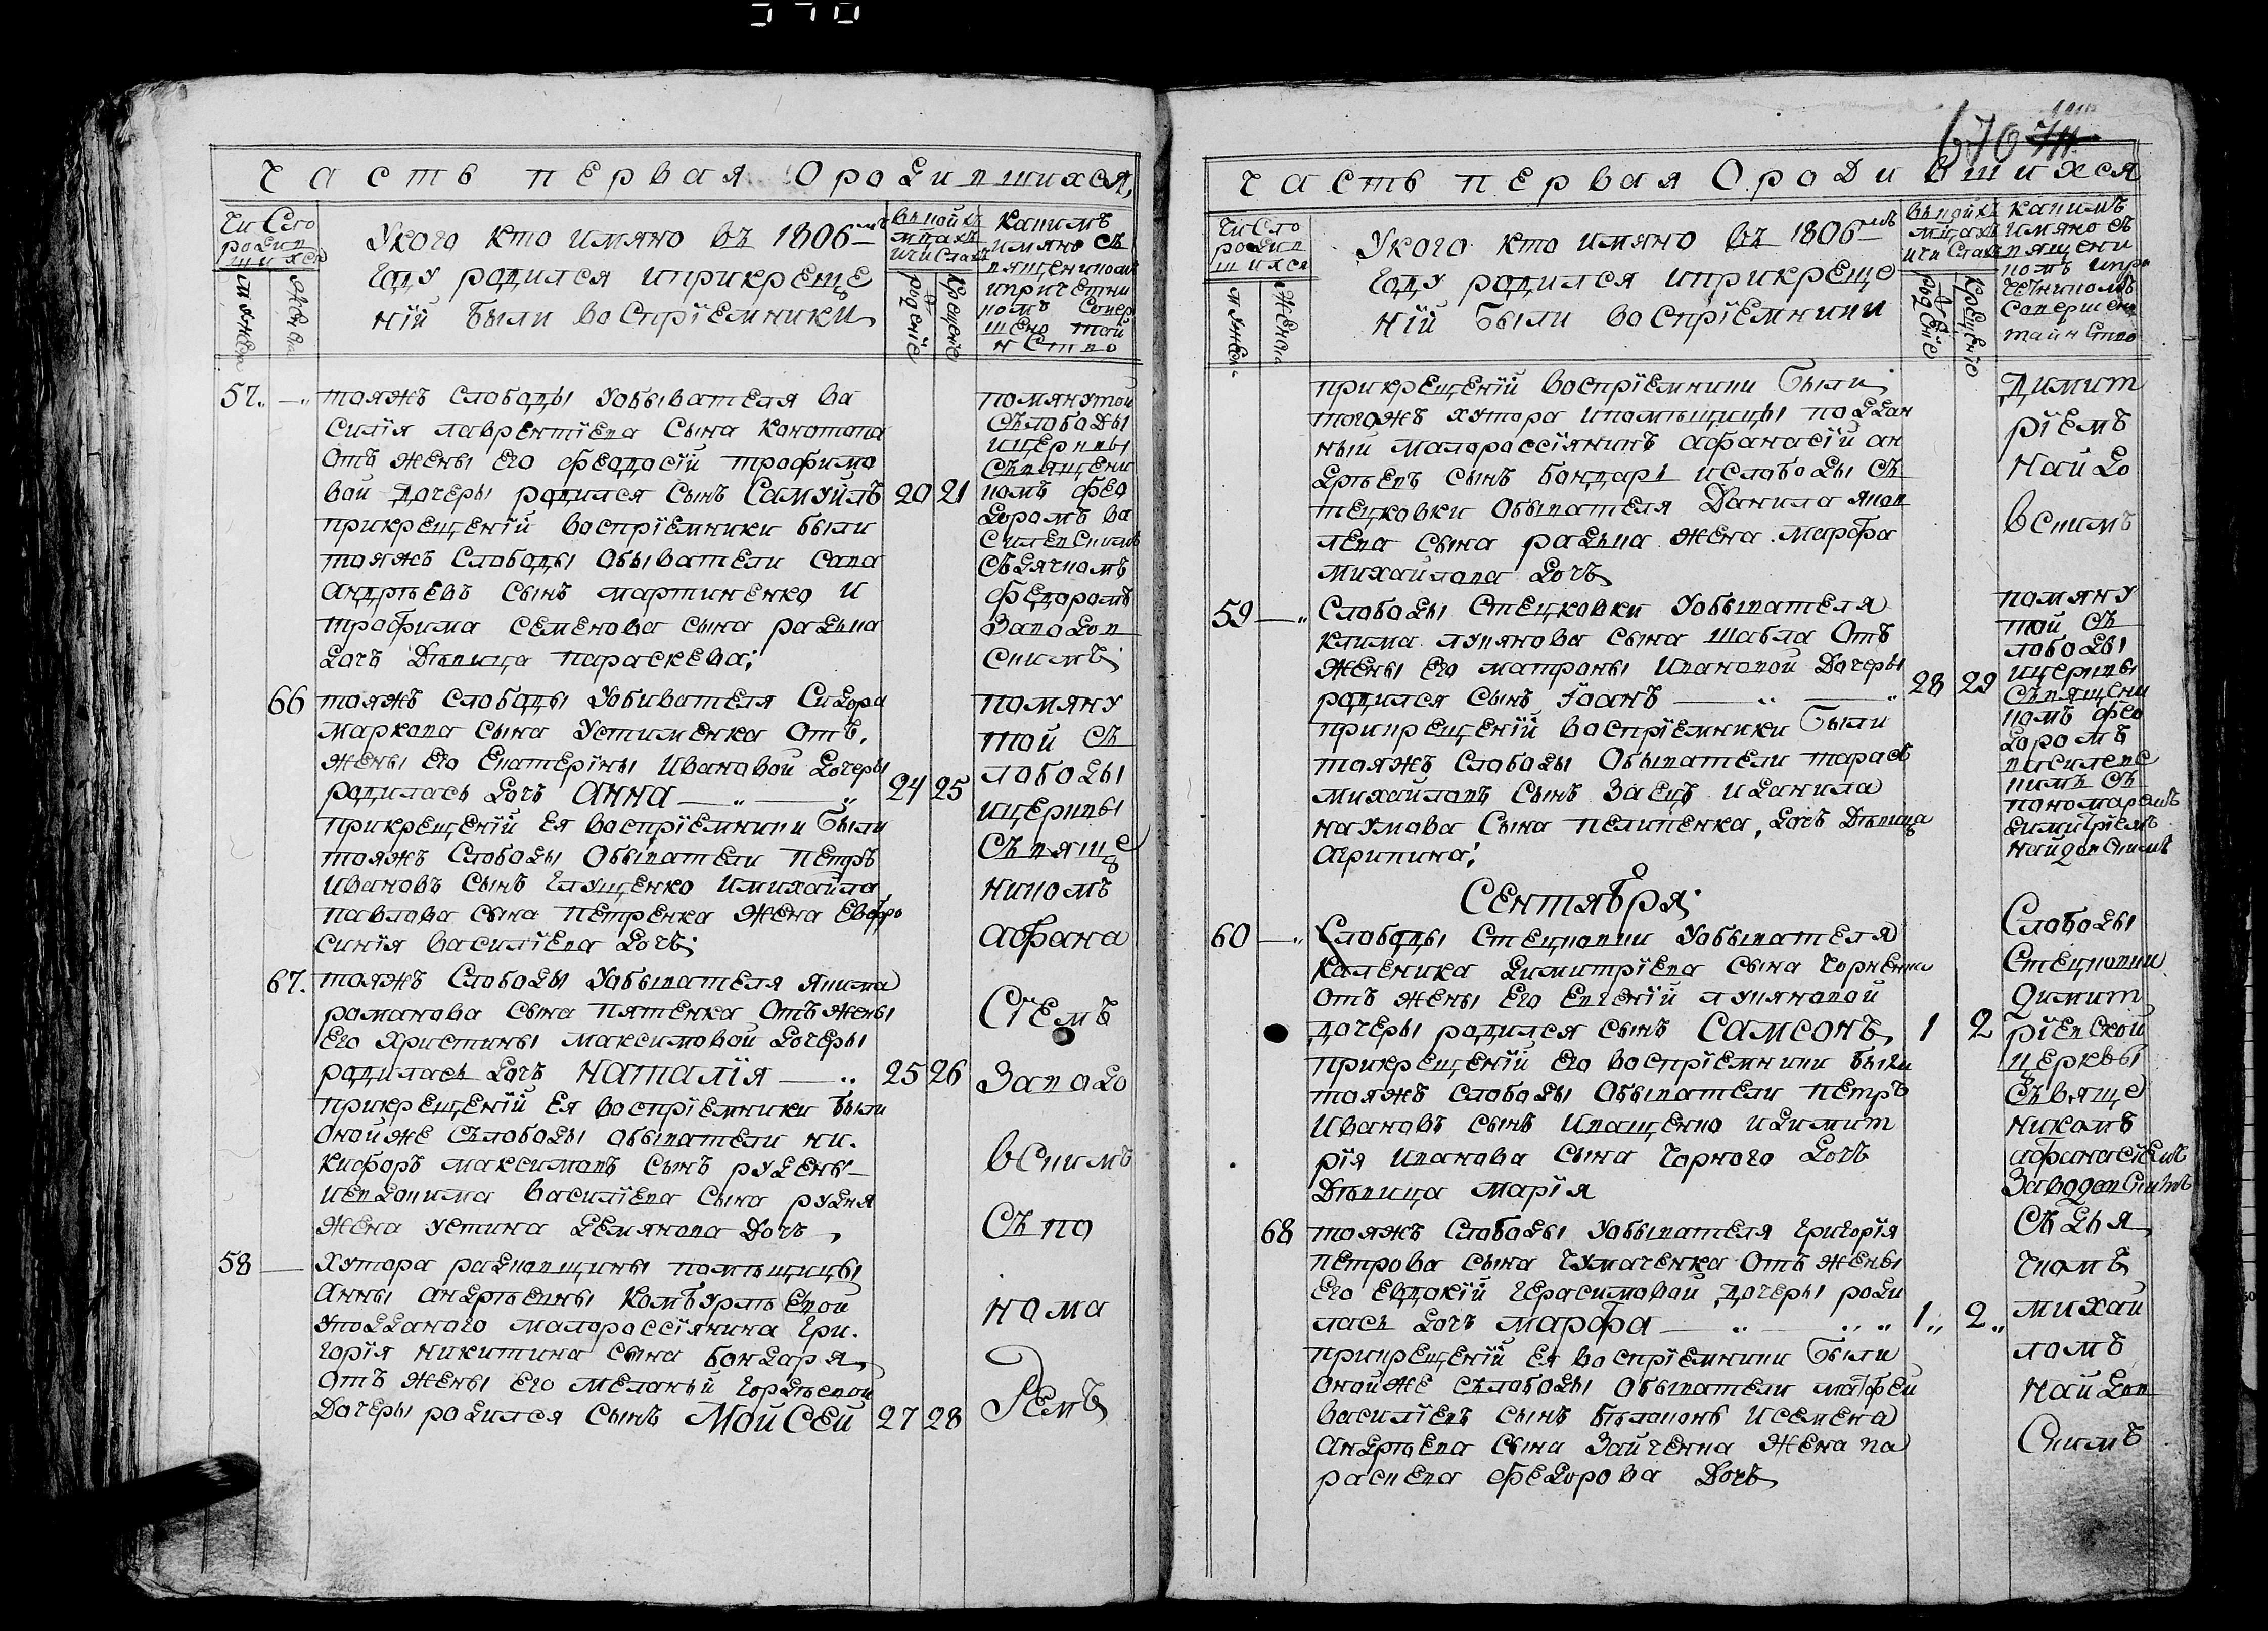 Часть первая О родившихся,
Число
родив
шихся
мужеск
женска
У кого кто имяно въ 1806мъ
году родился и при креще
ній были воспріемники
въ коихъ
мцахъ
и числахъ
рождение
крещение
Какимъ
имяно съ
вященикомъ
и причетни
комъ совер
шено той
нство
57. —
тояжъ слободы у обывателя Ва
силія Лаврентіева сына Конотопа
отъ жены его Феодосій Трофимо
вой дочеры родился сынъ Самуйлъ 20 21
при крещеній воспріемники были
тояжъ слободы обыватели Сава
Андрѣевъ сынъ Мартиненко и
Трофима Семенова сына
дочъ Дѣвица Параскева;
помянутой
сълободы
и церквы
съвящени
комъ Фео
доромъ Ва
силевскимъ
съ дячкомъ
Федоромъ
Заводов
скимъ
66
тояжъ слободы у обивателя Сидора
Маркова сына Устименка отъ
жены его Екатерины Ивановой дочеры
родилась дочъ Анна — 24 25
при крещеній ея воспріемники были
тояжъ слободы обыватели Петръ
Ивановъ сынъ Глущенко и Михайла
Павлова сына Петренка жена Евфро
синія Василіева дочъ;
помяну
той съ
лободы
и церквы
съвяще
никомъ
Афана
сіемъ
Заводо
вскимъ
съ по
нома
ремъ
67.
тояжъ слободы у обывателя Якима
Романова сына Пятенка отъ жены
его Христины Максимовой дочеры
родилась дочъ Наталія — 25 26
при крещеній ея воспріемники были
онойже сълободы обыватели Ни-
кифоръ Максимовъ сынъ
и Евдокима Василіева сына
жена Устина Демянова дочъ,
58 —
Хутора помѣщицы
Анны Андрѣевны
у подданого малороссіянина Гри-
горія Никитина сына Бондаря
отъ жены его Меланьй Гордѣевой
дочеры родился сынъ Мойсей 27 28
Часть первая О родившихся
676
Число
родив
шихся
мужеск
женска
У кого кто имяно въ 1806мъ
году родился и при креще
ній были воспріемники
въ коихъ
мцахъ
и числахъ
рождение
крещение
Какимъ
имяно съ
вящени
комъ и при
четникомъ
совершена
тайнство
при крещеній воспріемники были
тогожъ хутора и помѣщицы поддан
ный малороссіянинъ Афанасій Ан
дрѣевъ сынъ Бондарь и слободы Съ
тецковки обывателя Данила Яков
лева сына жена Марфа
Михайлова дочъ
Димит
ріемъ
Найдо
вскимъ
59 —
Слободы Стецковки у обывателя
Клима Лукянова сына Шабла отъ
жены его Матроны Ивановой дочеры
родился сынъ Іоанъ — 28 29
при крещеній воспріемники были
тояжъ слободы обыватели Тарасъ
Михайловъ сынъ Заецъ и Данила
Наумова сына Пелипенка, дочъ Дѣвица
Агрипина;
помяну
той съ
лободы
и церквы
съвящени
комъ Фео
доромъ
Василевс
кимъ съ
пономаремъ
Димитріемъ
Найдовскимъ
Сентября;
60 —
Слободы Стецковки у обывателя
Каленика Димитріева сына Чорненка
отъ жены его Евгеній Лукяновой
дочеры родился сынъ Самсонъ, 1 2
при крещеній его воспріемники были
тояжъ слободы обыватели Петръ
Ивановъ сынъ Иващенко и Димит
рія Иванова сына Чорного дочъ
Дѣвица Марія
Слободы
Стецковки
Димит
ріевской
церквы
съвяще
никомъ
Афанасіемъ
Заводовскимъ
съ дья
чкомъ
Михай
ломъ
Найдов
скимъ
68
тояжъ слободы у обывателя Григорія
Петрова сына Чумаченка отъ жены
его Евдокій Герасимовой дочеры роди
лась дочъ Марфа — 1 2
при крещеній ея воспріемники были
онойже сълободы обыватели Матфей
Василіевъ сынъ Бѣлоконь и Семена
Андрѣева сына Зайченка жена Па
раскева Федорова дочъ